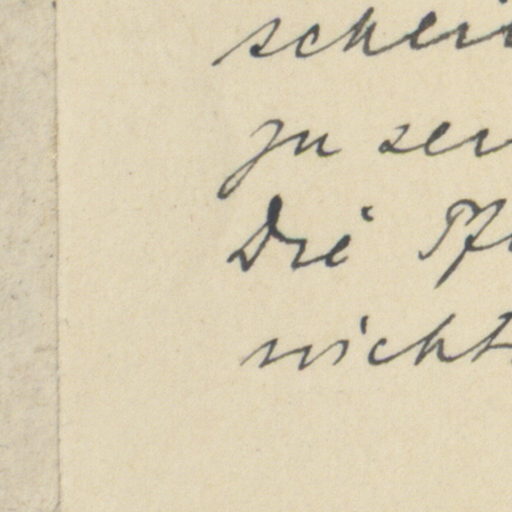 schei
zu sei
Die Pf
nicht